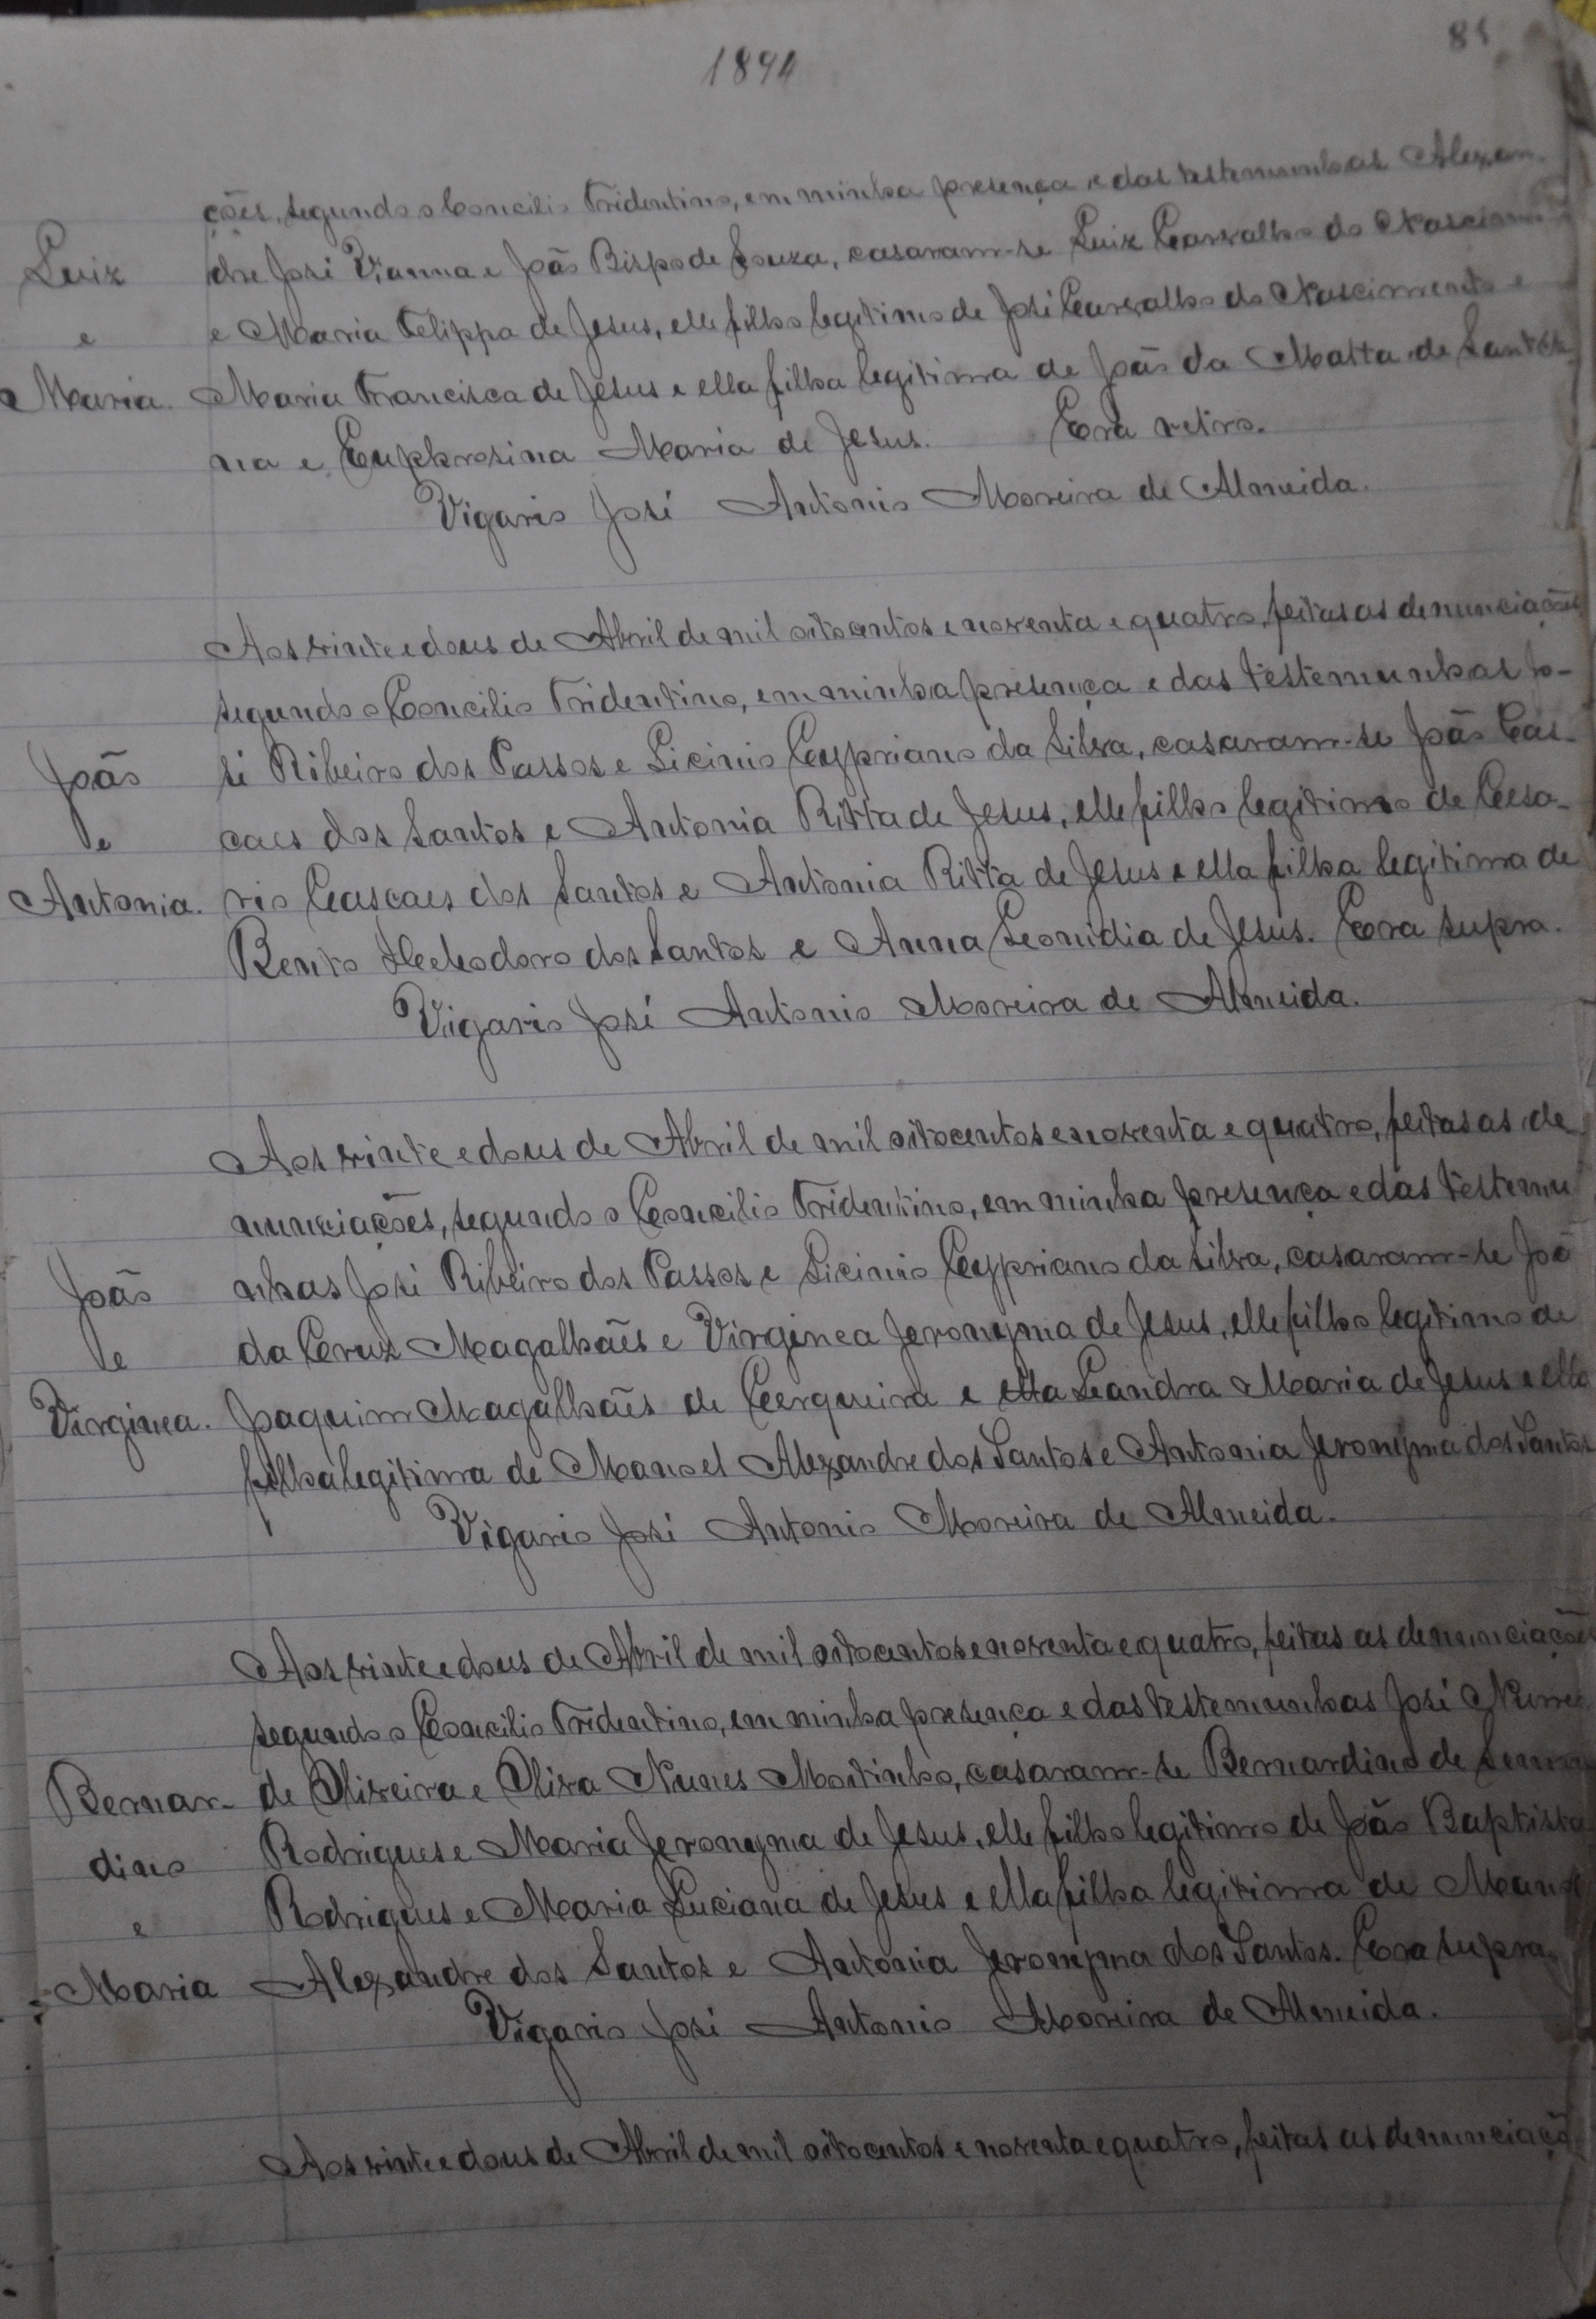 1894
ções, segundo o Concilio Tridentino, em minha presença e das testemunhas Alexan-
Luiz dre José Vianna e João Bispo de Souza, casaram-se Luiz Carvalho do Nascimento
e e Maria Felippa de Jesus, elle filho legitimo de José Carvalho do Nascimento e
Maria. Maria Francisca de Jesus e ella filha legitima de João da Matta de Sant'An-
na e Euphrosina Maria de Jesus. Era retro.
Vigario José Antonio Moreira de Almeida.
Aos vinte e dous de Abril de mil oitocentos e noventa e quatro, feitas as denunciações
segundo o Concilio Tridentino, em minha presença e das testemunhas Jo-
João sé Ribeiro dos Passos e Licinio Cypriano da Silva, casaram-se João Cas-
e caes dos Santos e Antonia Ritta de Jesus, elle filho legitimo de Cesa-
Antonia. rio Cascaes dos Santos e Antonia Ritta de Jesus e ella filha legitima de
Bento Heliodoro dos Santos e Anna Leonidia de Jesus. Era supra.
Vigario José Antonio Moreira de Almeida.
Aos vinte e dous de Abril de mil oitocentos e noventa e quatro, feitas as de
nunciações, segundo o Concilio Tridentino, em minha presença e das testemu
João nhas José Ribeiro dos Passos e Licinio Cypriano da Silva, casaram-se João
e da Cruz Magalhães e Virginea Jeronyma de Jesus, elle filho legitimo de
Virginea. Joaquim Magalhães de Cerqueira e Leandra Maria de Jesus e ella
filha legitima de Manoel Alexandre dos Santos e Antonia Jeronyma dos Santos
Vigario José Antonio Moreira de Almeida.
Aos vinte e dous de Abril de mil oitocentos e noventa e quatro, feitas as denunciações
segundo o Concilio Tridentino, em minha presença e das testemunhas José Nunes
Bernar- de Oliveira e Oliva Nunes Moitinho, casaram-se Bernardino de
dino Rodrigues e Maria Jeronyma de Jesus, elle filho legitimo de João Baptista
e Rodrigues e Maria Luciana de Jesus e ella filha legitima de Manoel
Maria Alexandre dos Santos e Antonia Jeronyma dos Santos. Era supra.
Vigario José Antonio Moreira de Almeida.
Aos vinte e dous de Abril de mil oitocentos e noventa e quatro, feitas as denunciaçõ